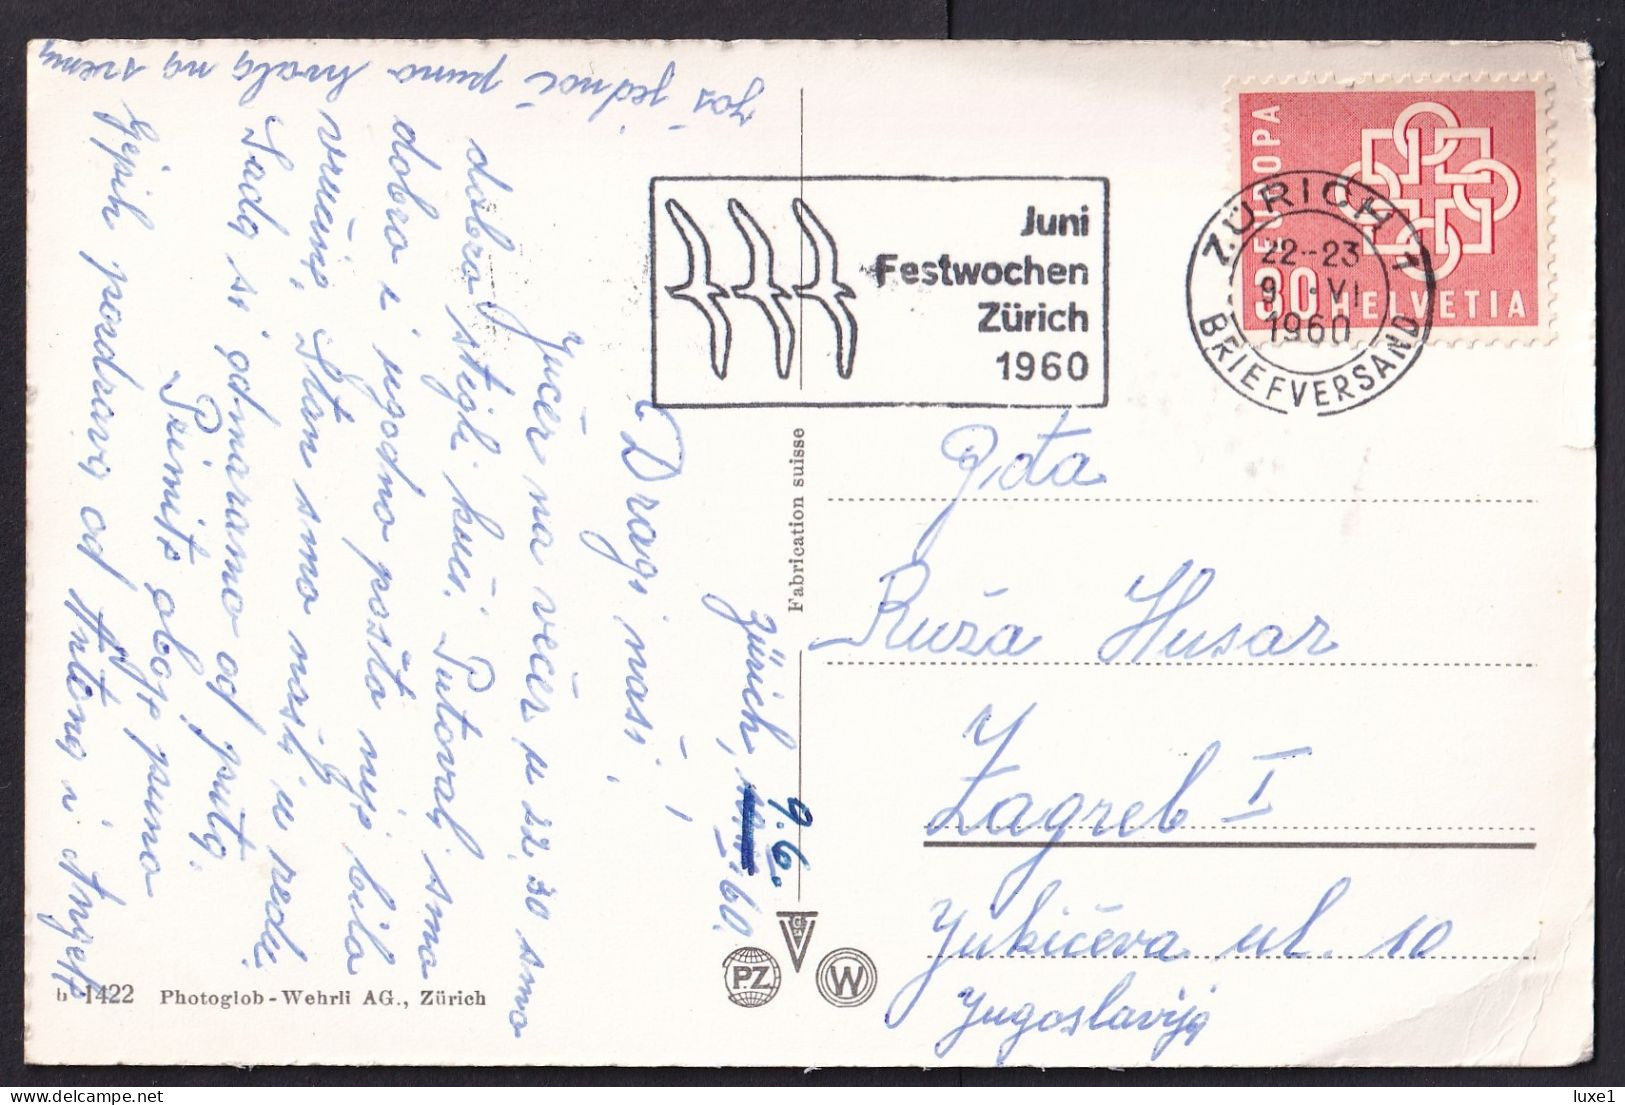 Još jednoč puno hvala na svemu
Zürich, 9.6. 60.
Dragi naši,
Jučer na večer u 22.30 smo
dobro stigli kući. Putovali smo
dobro i ugodno pošto nije bila
vrućina. Stan smo našli u redu.
Sada si odmaramo od puta.
Primite oboje puno
lijepih pozdrava od Antona i
Juni
Festwochen
Zürich
1960
EUROPA
30 HELVETIA
ZÜRICH 1
22-23
9. VI
1960
BRIEFVERSAND
Gđa
Ruža Husar
Zagreb I
Jukićeva ul. 10
Jugoslavija
Fabrication suisse
PZ
W
1422 Photoglob-Wehrli AG., Zürich
luxe1